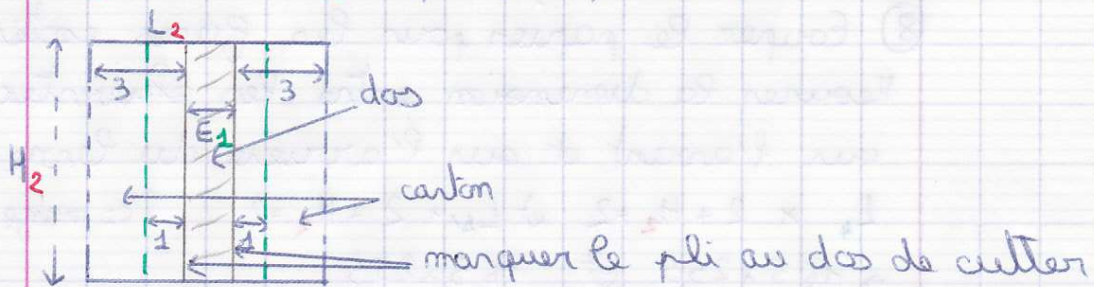 L2
3
3
dos
E1
H2
carton
1
1
marquer le pli au dos de cutter